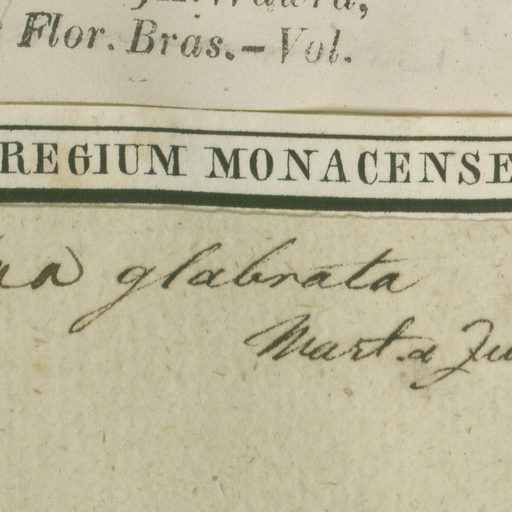 Flor. Bras.—Vol.
REGIUM MONACENSE
glabrata
Mart. & Zu